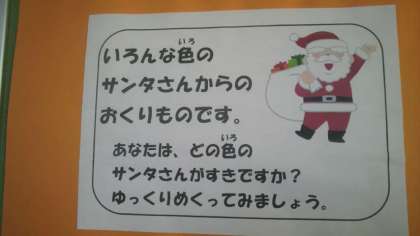 いろんな色のいろ
サンタさんからの
おくりものです。
あなたは、どの色のいろ
サンタさんがすきですか？
ゆっくりめくってみましょう。